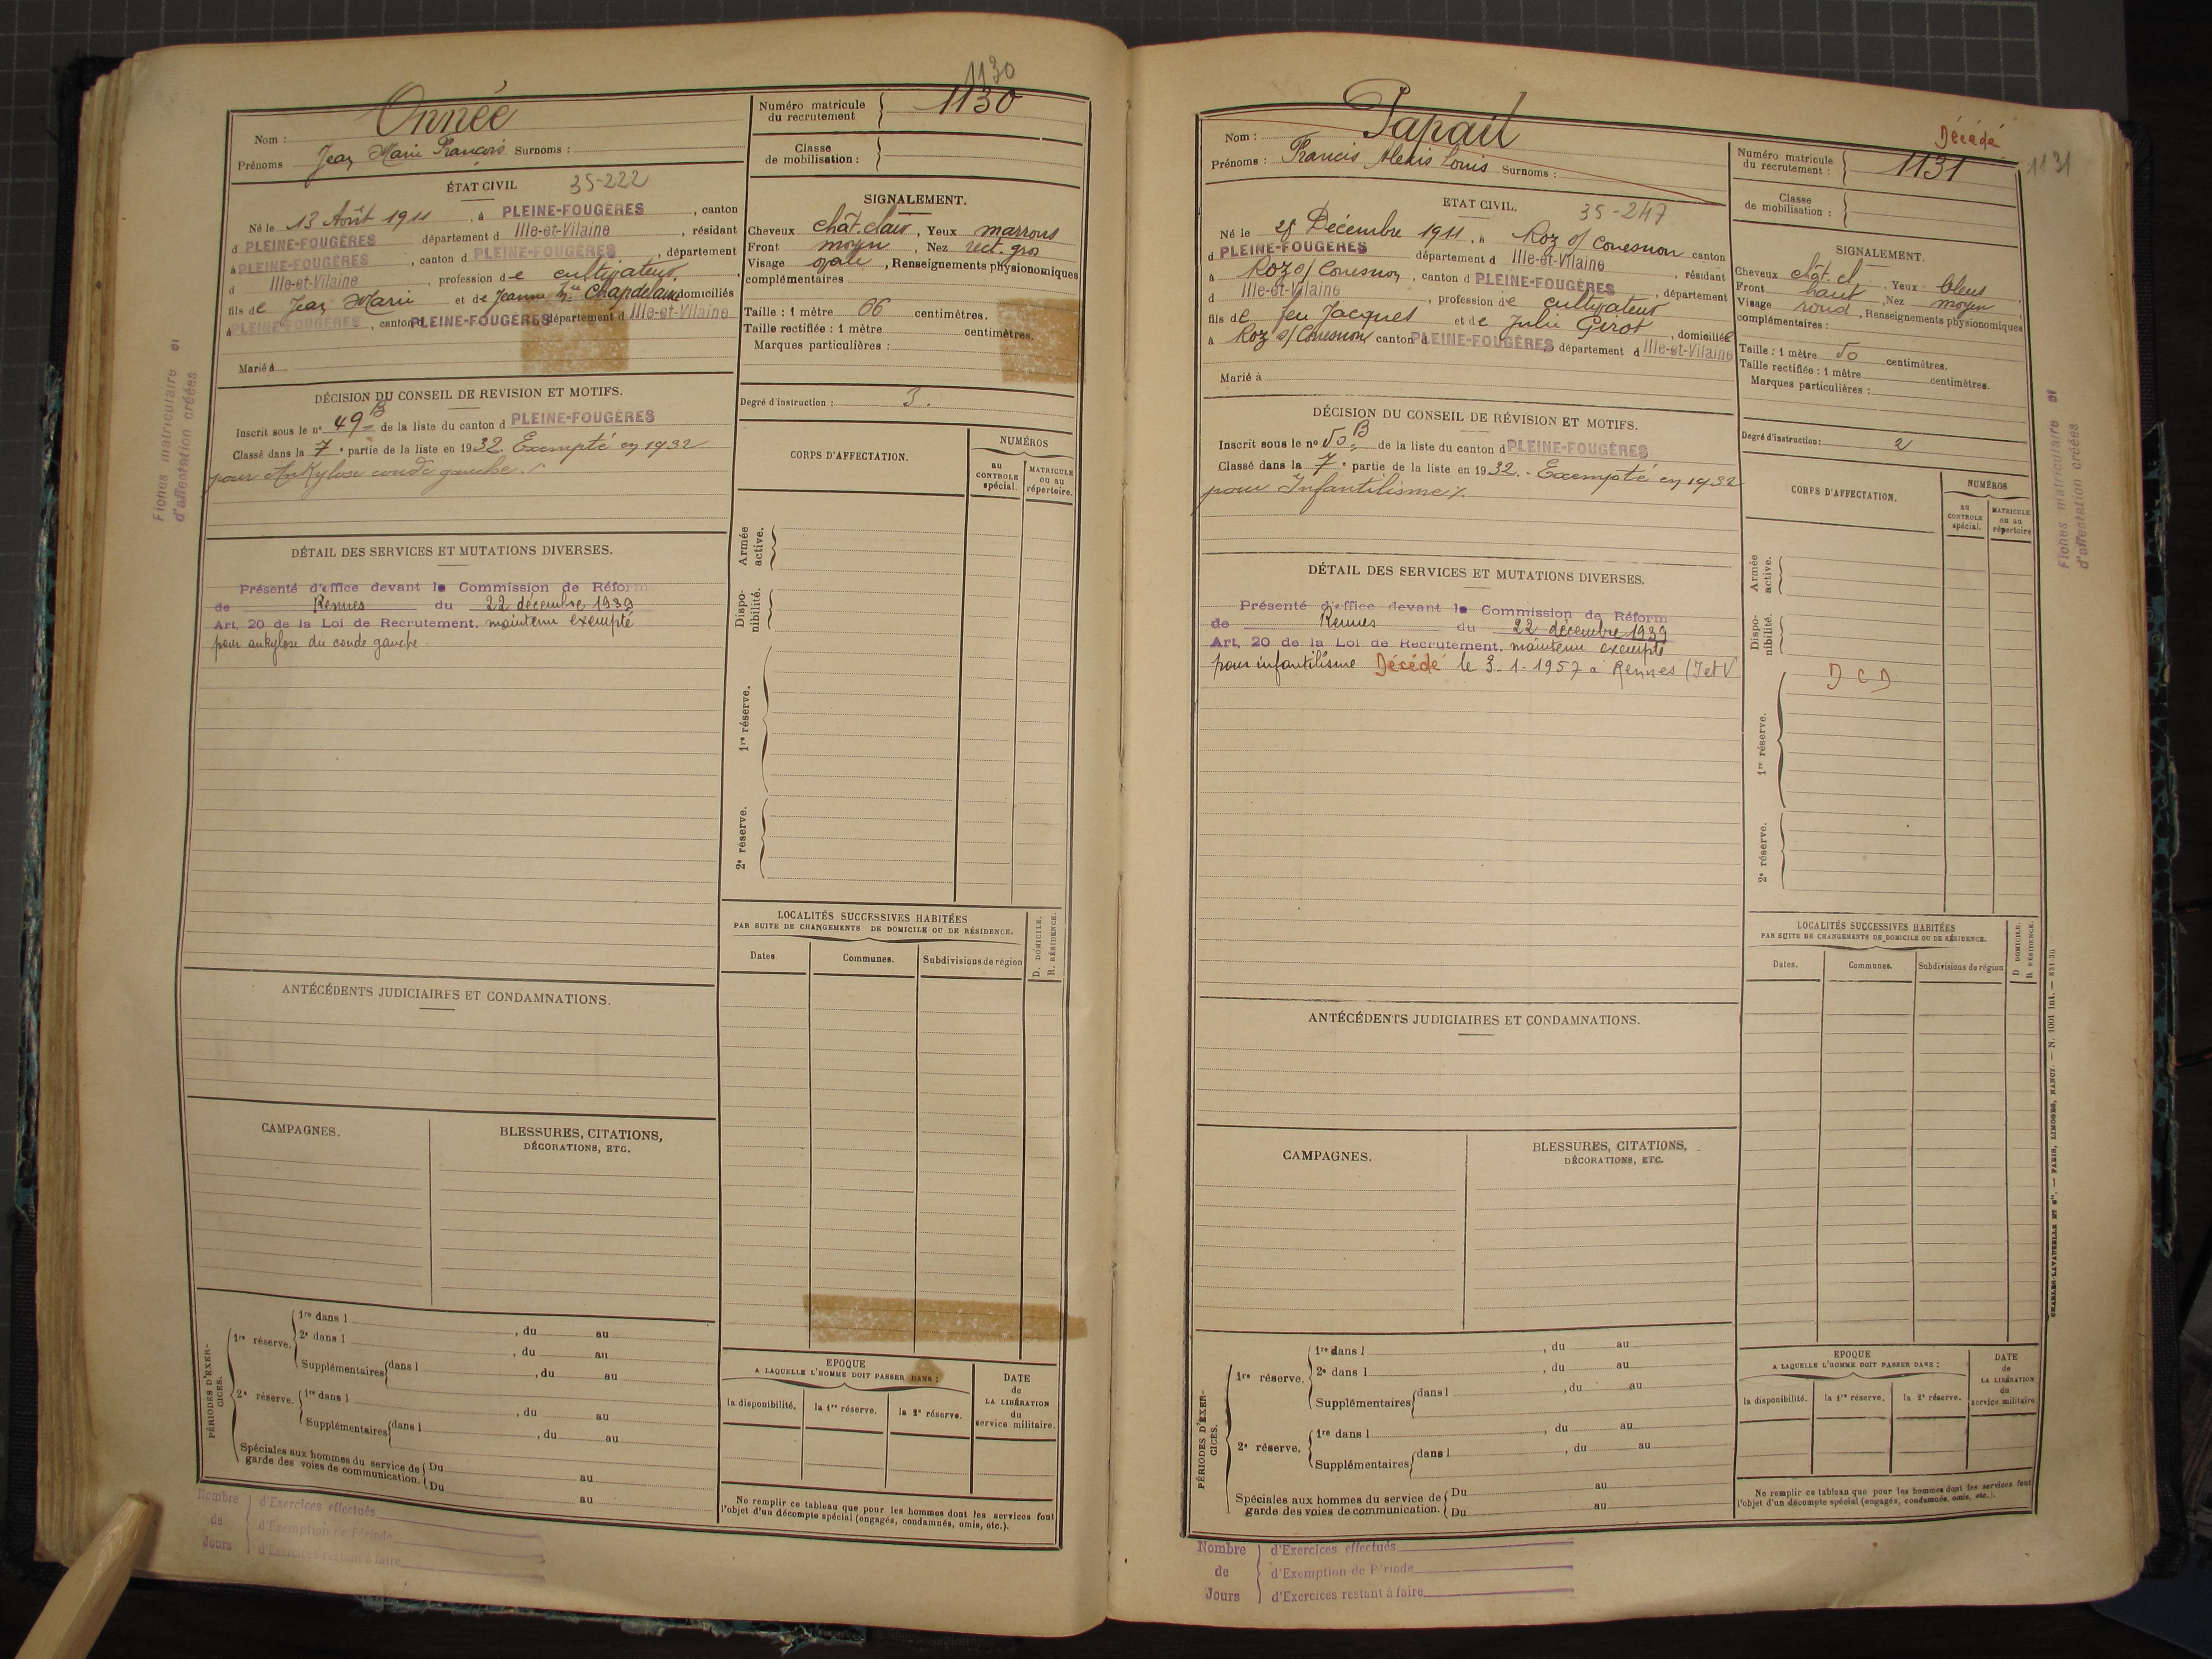 1130
Onnée
Nom :
Prénoms Jean Marie François Surnoms :
Numéro matricule
du recrutement
1130
Classe
de mobilisation :
ÉTAT CIVIL
35-222
Né le 13 Août 1911, à PLEINE-FOUGÈRES, canton
d PLEINE-FOUGÈRES département d Ille-et-Vilaine, résidant
à PLEINE-FOUGÈRES, canton d PLEINE-FOUGÈRES, département
d Ille-et-Vilaine, profession de cultivateur,
fils de Jean Marie et de Jeanne Chapdelaine domiciliés
à PLEINE-FOUGÈRES, canton PLEINE-FOUGÈRES département d Ille-et-Vilaine
Marié à
SIGNALEMENT.
Cheveux chât. clair, Yeux marrons
Front moyen, Nez rect. gros
Visage ovale, Renseignements physionomiques
complémentaires
Taille : 1 mètre 66 centimètres.
Taille rectifiée : 1 mètre centimètres.
Marques particulières :
Degré d'instruction : 3.
DÉCISION DU CONSEIL DE REVISION ET MOTIFS.
Inscrit sous le nº 49 B de la liste du canton d PLEINE-FOUGÈRES
Classé dans la 7e partie de la liste en 1932. Exempté en 1932
pour Ankylose coude gauche./.
CORPS D'AFFECTATION.
NUMÉROS
au
CONTROLE
spécial.
MATRICULE
ou au
répertoire.
Armée
active.
Dispo-
nibilité.
1re réserve.
2e réserve.
DÉTAIL DES SERVICES ET MUTATIONS DIVERSES.
Présenté d'office devant le Commission de Réforme
de Rennes du 22 décembre 1939
Art. 20 de la Loi de Recrutement. maintenu exempté
pour ankylose du coude gauche
LOCALITÉS SUCCESSIVES HABITÉES
PAR SUITE DE CHANGEMENTS DE DOMICILE OU DE RÉSIDENCE.
Dates
Communes.
Subdivisions de région
D. DOMICILE.
R. RÉSIDENCE.
ANTÉCÉDENTS JUDICIAIRES ET CONDAMNATIONS.
CAMPAGNES.
BLESSURES, CITATIONS,
DÉCORATIONS, ETC.
PÉRIODES D'EXER-
CICES.
1re réserve.
1re dans l , du au
2e dans l , du au
Supplémentaires dans l , du au
2e réserve.
1re dans l , du au
Supplémentaires dans l , du au
Spéciales aux hommes du service de
garde des voies de communication.
Du au
Du au
EPOQUE
A LAQUELLE L'HOMME DOIT PASSER DANS :
la disponibilité.
la 1re réserve.
la 2e réserve.
DATE
de
LA LIBÉRATION
du
service militaire.
Ne remplir ce tableau que pour les hommes dont les services font
l'objet d'un décompte spécial (engagés, condamnés, omis, etc.).
Nombre
de
Jours
d'Exercices effectués
d'Exemption de Période
d'Exercices restant à faire
Fiches matriculaire et
d'affectation créées
Papail
Nom :
Prénoms : Francis Alexis Louis Surnoms :
Décédé
Numéro matricule
du recrutement :
1131
1131
Classe
de mobilisation :
ETAT CIVIL.
35-247
Né le 28 Décembre 1911, à Roz s/ Couesnon canton
d PLEINE-FOUGÈRES département d Ille-et-Vilaine, résidant
à Roz s/ Couesnon, canton d PLEINE-FOUGÈRES, département
d Ille-et-Vilaine, profession de cultivateur
fils de feu Jacques et de Julie Girot, domiciliée
à Roz s/ Couesnon canton d PLEINE-FOUGÈRES département d Ille-et-Vilaine
Marié à
SIGNALEMENT.
Cheveux chât. cl, Yeux bleus,
Front haut, Nez moyen,
Visage rond, Renseignements physionomiques
complémentaires :
Taille : 1 mètre 50 centimètres.
Taille rectifiée : 1 mètre centimètres.
Marques particulières :
Degré d'instruction : 2
DÉCISION DU CONSEIL DE RÉVISION ET MOTIFS.
Inscrit sous le nº 50 B de la liste du canton d PLEINE-FOUGÈRES
Classé dans la 7e partie de la liste en 1932. - Exempté en 1932
pour Infantilisme/.
CORPS D'AFFECTATION.
NUMÉROS
au
CONTROLE
spécial.
MATRICULE
ou au
répertoire
Armée
active.
Dispo-
nibilité.
DCD
1re réserve.
2e réserve.
DÉTAIL DES SERVICES ET MUTATIONS DIVERSES.
Présenté d'office devant le Commission de Réform
de Rennes du 22 décembre 1939
Art. 20 de la Loi de Recrutement. maintenu exempté
pour infantilisme Décédé le 3-1-1957 à Rennes (I et V
LOCALITÉS SUCCESSIVES HABITÉES
PAR SUITE DE CHANGEMENTS DE DOMICILE OU DE RÉSIDENCE.
Dates.
Communes.
Subdivisions de région
D DOMICILE.
R RÉSIDENCE.
ANTÉCÉDENTS JUDICIAIRES ET CONDAMNATIONS.
CAMPAGNES.
BLESSURES, CITATIONS,
DÉCORATIONS, ETC.
PÉRIODES D'EXER-
CICES.
1re réserve.
1re dans l , du au
2e dans l , du au
Supplémentaires dans l , du au
2e réserve.
1re dans l , du au
Supplémentaires dans l , du au
Spéciales aux hommes du service de
garde des voies de communication.
Du au
Du au
EPOQUE
A LAQUELLE L'HOMME DOIT PASSER DANS :
la disponibilité.
la 1re réserve.
la 2e réserve.
DATE
de
LA LIBÉRATION
du
service militaire
Ne remplir ce tableau que pour les hommes dont les services font
l'objet d'un décompte spécial (engagés, condamnés, omis, etc.).
Nombre
de
Jours
d'Exercices effectués
d'Exemption de Période
d'Exercices restant à faire
Fiches matriculaire et
d'affectation créées
CHARLES-LAVAUZELLE ET Cie. — PARIS, LIMOGES, NANCY. — N. 1001 int. — 831-30